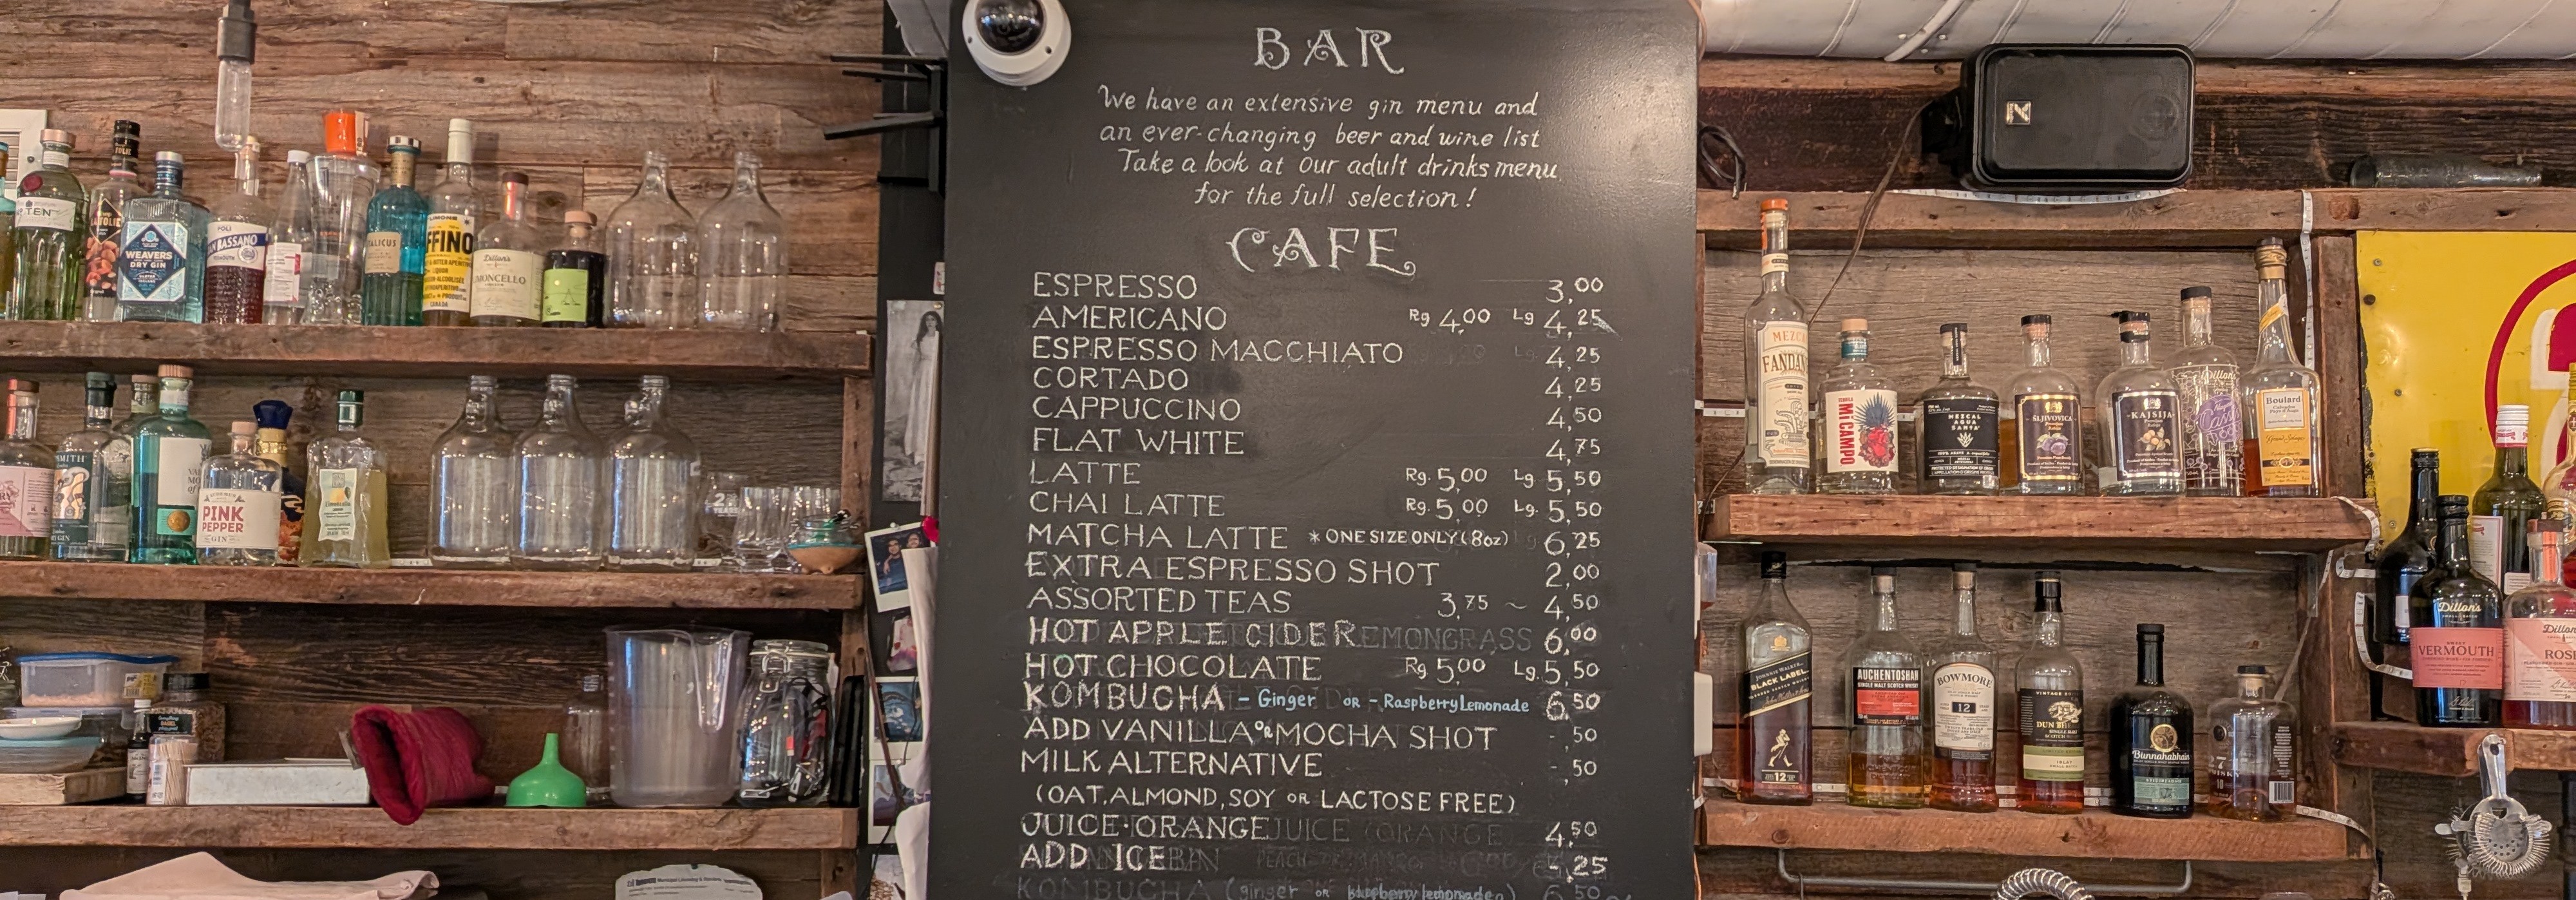 BAR
We have an extensive gin menu and
an ever-changing beer and wine list
Take a look at our adult drinks menu
for the full selection!
CAFE
ESPRESSO 3,00
AMERICANO Rg 4,00 Lg 4,25
ESPRESSO MACCHIATO 4,25
CORTADO 4,25
CAPPUCCINO 4,50
FLAT WHITE 4,75
LATTE Rg. 5,00 Lg. 5,50
CHAI LATTE Rg. 5,00 Lg. 5,50
MATCHA LATTE * ONE SIZE ONLY (8oz) 6,25
EXTRA ESPRESSO SHOT 2,00
ASSORTED TEAS 3,75 ~ 4,50
HOT APPLE CIDER LEMONGRASS 6,00
HOT CHOCOLATE Rg 5,00 Lg. 5,50
KOMBUCHA - Ginger OR - Raspberry Lemonade 6,50
ADD VANILLA OR MOCHA SHOT -,50
MILK ALTERNATIVE -,50
(OAT, ALMOND, SOY OR LACTOSE FREE)
JUICE·ORANGE JUICE (ORANGE) 4,50
ADD ICE -,25
KOMBUCHA (ginger OR raspberry lemonade) 6,50
TEN
WEAVERS
DRY GIN
POLI
BASSANO
ITALICUS
FFINO
Dillon's
MONCELLO
PINK
PEPPER
GIN
MEZCAL
FANDAN
MICAMPO
MEZCAL
AGUA
SANTA
ŠLJIVOVICA
KAJSIJA
Dillon's
Boulard
JOHNNIE WALKER
BLACK LABEL
12
AUCHENTOSHAN
BOWMORE
12
DUN
Bunnahabhain
Dillon's
VERMOUTH
Dillon's
ROSÉ